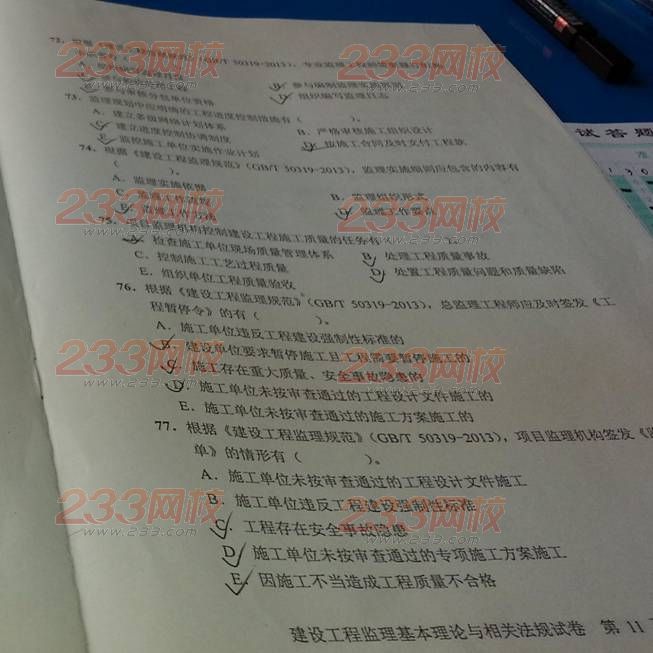 72. 根据
(GB/T 50319-2013)，专业监理工程师
D. 组织编写监理日志
73. 监理规划中应明确的工程进度控制措施有（ ）。
A. 建立多级网络计划体系
B. 严格审核施工组织设计
C. 建立进度控制协调制度
D. 按施工合同及时支付工程款
E. 监控施工单位实施作业计划
74. 根据《建设工程监理规范》(GB/T 50319-2013)，监理实施细则应包含的内容有
（ ）。
A. 监理实施依据
B. 监理组织形式
C. 监理工作流程
D. 监理工作要点
E. 监理工作方法
75. 项目监理机构控制建设工程施工质量的任务有（ ）。
A. 检查施工单位现场质量管理体系
B. 处理工程质量事故
C. 控制施工工艺过程质量
D. 处置工程质量问题和质量缺陷
E. 组织单位工程质量验收
76. 根据《建设工程监理规范》(GB/T 50319-2013)，总监理工程师应及时签发《工
程暂停令》的有（ ）。
A. 施工单位违反工程建设强制性标准的
B. 建设单位要求暂停施工且工程需要暂停施工的
C. 施工存在重大质量、安全事故隐患的
D. 施工单位未按审查通过的工程设计文件施工的
E. 施工单位未按审查通过的施工方案施工的
77. 根据《建设工程监理规范》(GB/T 50319-2013)，项目监理机构签发《监
单》的情形有（ ）。
A. 施工单位未按审查通过的工程设计文件施工
B. 施工单位违反工程建设强制性标准
C. 工程存在安全事故隐患
D. 施工单位未按审查通过的专项施工方案施工
E. 因施工不当造成工程质量不合格
建设工程监理基本理论与相关法规试卷 第 11
试答题
233网校
www.233.com
233网校
www.233.com
233网校
www.233.com
233网校
www.233.com
233网校
www.233.com
233网校
www.233.com
233网校
www.233.com
233网校
www.233.com